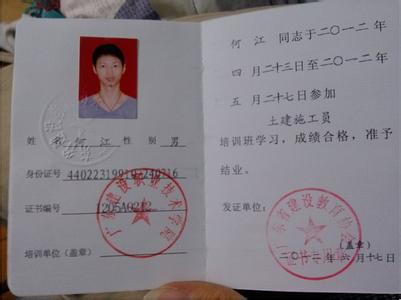 姓名 何江 性别 男
身份证号
证书编号 1205A0212
培训单位(盖章)
广东建设职业技术学院
何江 同志于二〇一二年
四月二十三日至二〇一二年
五月二十七日参加
土建施工员
培训班学习，成绩合格，准予
结业。
发证单位：
广东省建设教育协会
证书专用章
(盖章)
二〇一二年六月十七日